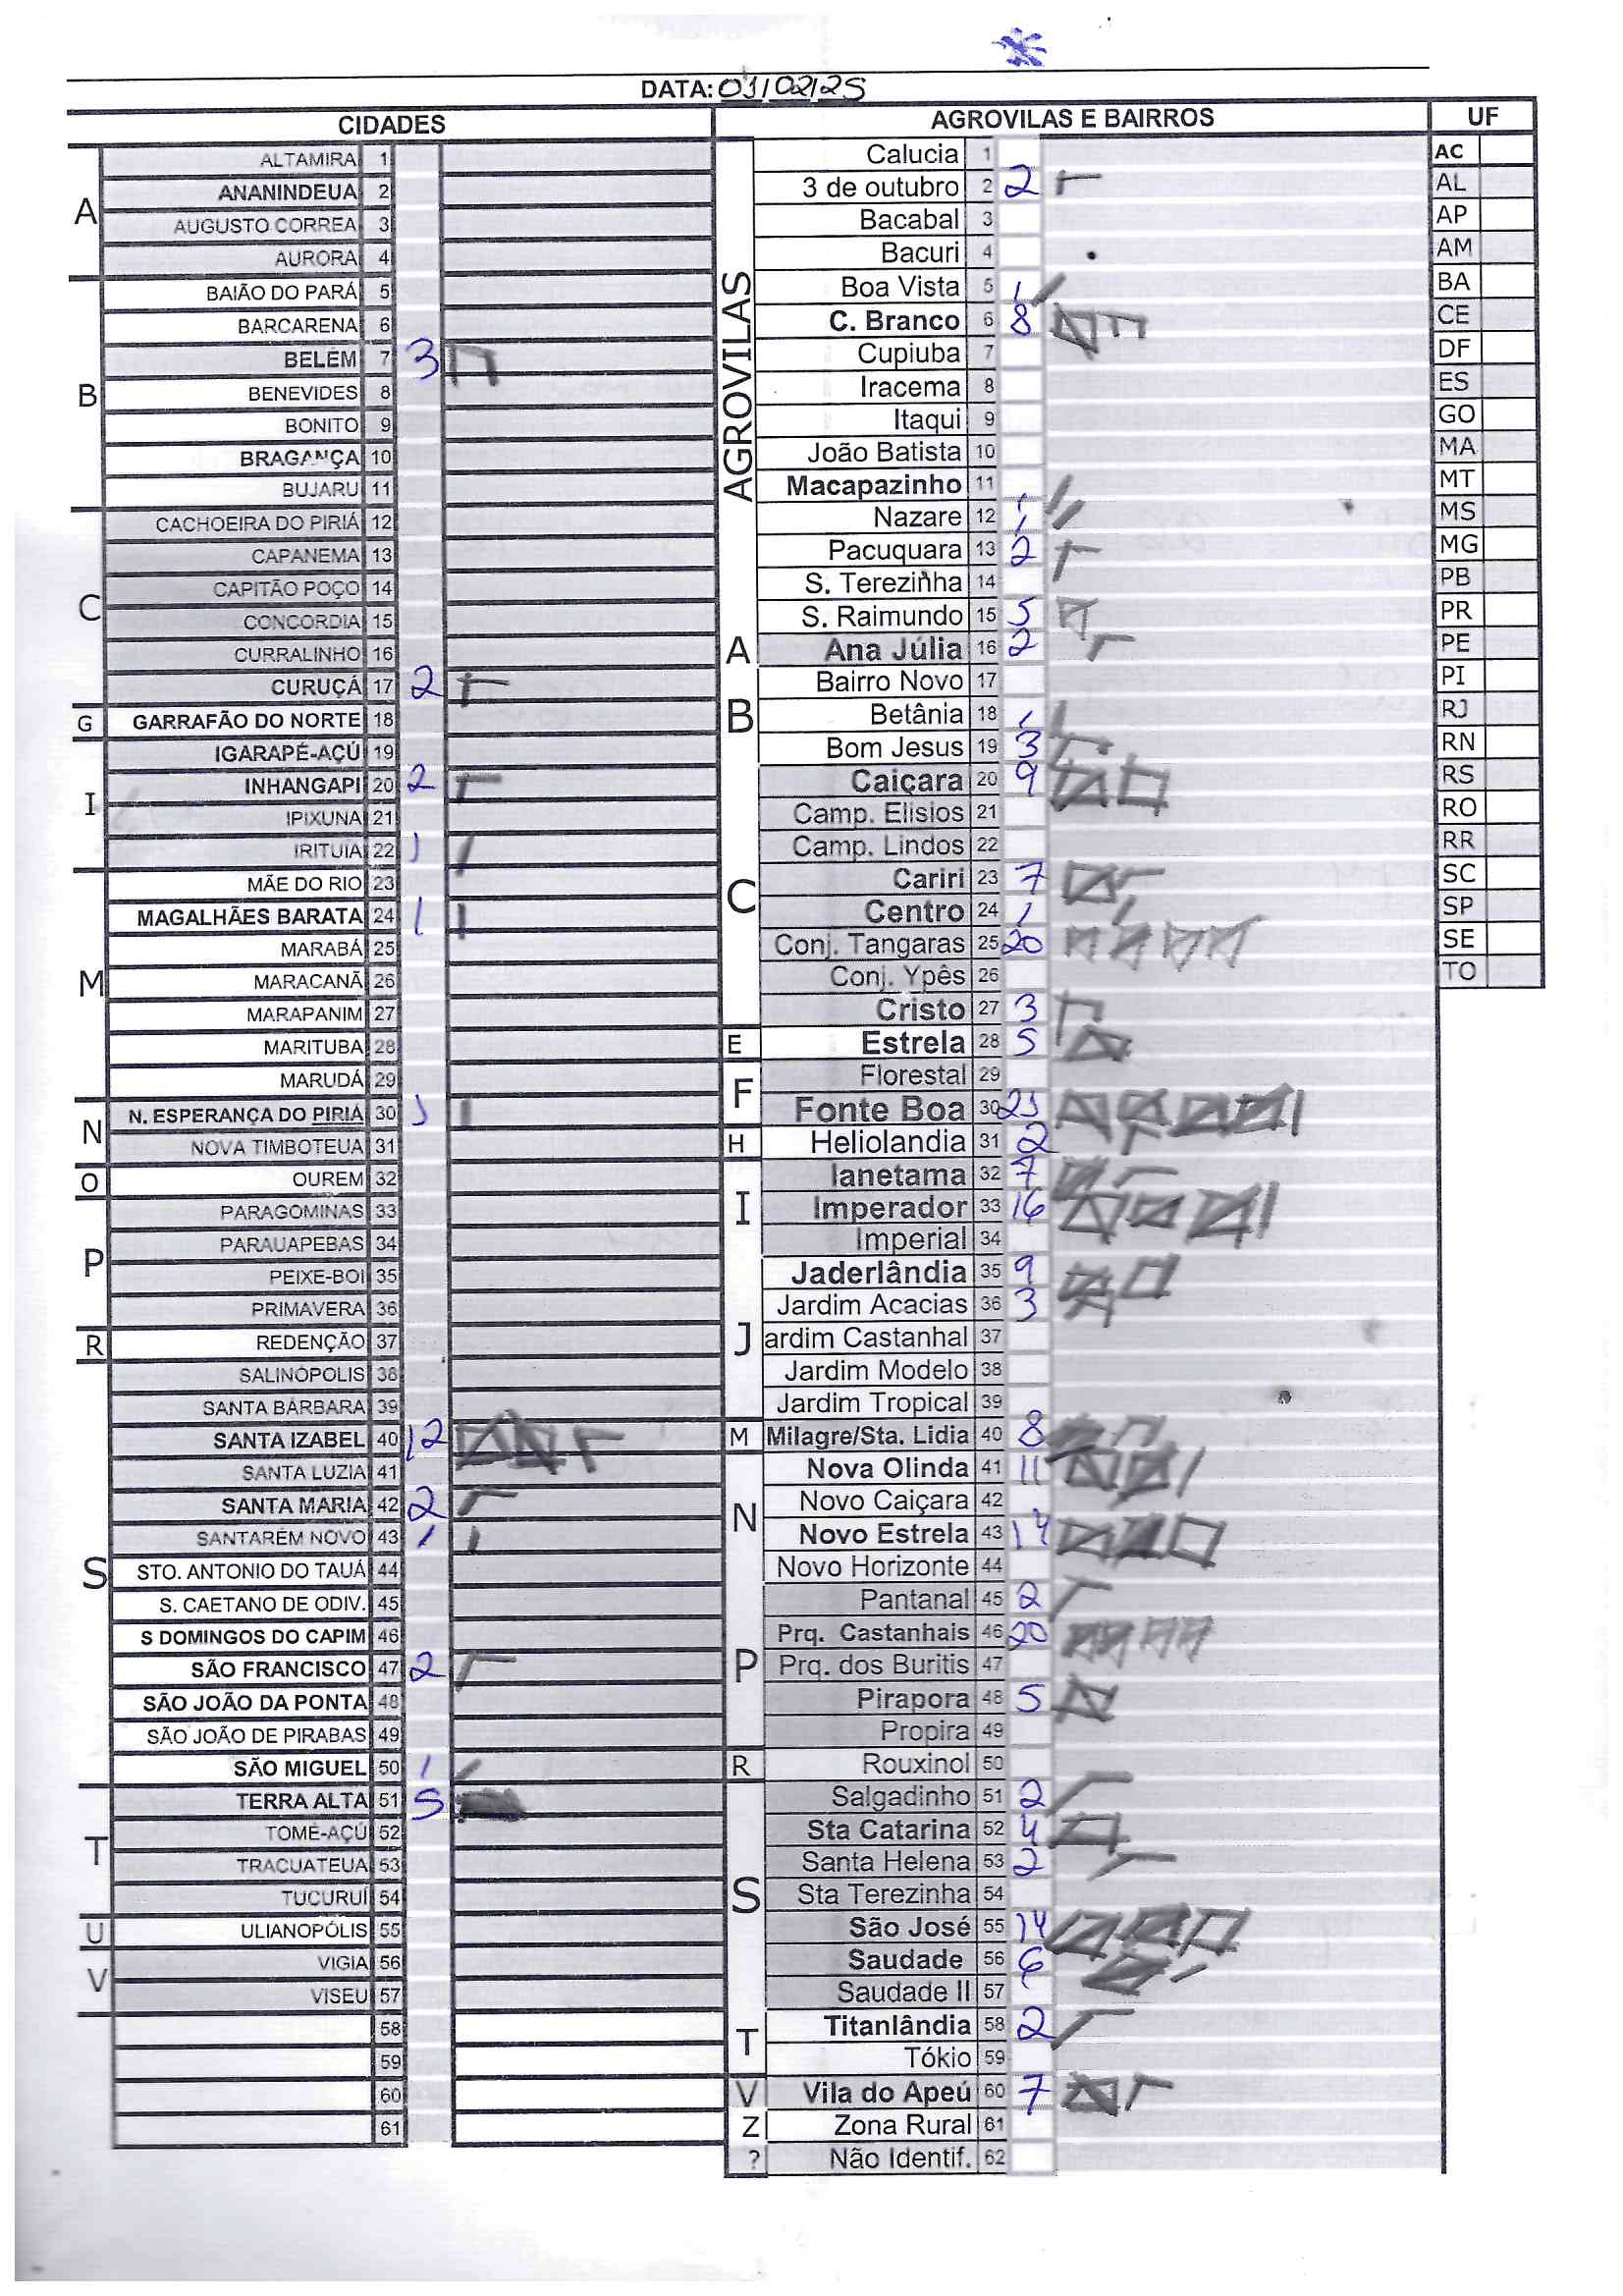 DATA: 01/02/25
CIDADES
A
ALTAMIRA 1
ANANINDEUA 2
AUGUSTO CORREA 3
AURORA 4
B
BAIÃO DO PARÁ 5
BARCARENA 6
BELÉM 7 3
BENEVIDES 8
BONITO 9
BRAGANÇA 10
BUJARU 11
C
CACHOEIRA DO PIRIÁ 12
CAPANEMA 13
CAPITÃO POÇO 14
CONCORDIA 15
CURRALINHO 16
CURUÇÁ 17 2
G
GARRAFÃO DO NORTE 18
I
IGARAPÉ-AÇÚ 19
INHANGAPI 20 2
IPIXUNA 21
IRITUIA 22 1
M
MÃE DO RIO 23
MAGALHÃES BARATA 24 1
MARABÁ 25
MARACANÃ 26
MARAPANIM 27
MARITUBA 28
MARUDÁ 29
N
N. ESPERANÇA DO PIRIÁ 30 1
NOVA TIMBOTEUA 31
O
OUREM 32
P
PARAGOMINAS 33
PARAUAPEBAS 34
PEIXE-BOI 35
PRIMAVERA 36
R
REDENÇÃO 37
S
SALINÓPOLIS 38
SANTA BÁRBARA 39
SANTA IZABEL 40 12
SANTA LUZIA 41
SANTA MARIA 42 2
SANTARÉM NOVO 43 1
STO. ANTONIO DO TAUÁ 44
S. CAETANO DE ODIV. 45
S DOMINGOS DO CAPIM 46
SÃO FRANCISCO 47 2
SÃO JOÃO DA PONTA 48
SÃO JOÃO DE PIRABAS 49
SÃO MIGUEL 50 1
T
TERRA ALTA 51 5
TOMÉ-AÇÚ 52
TRACUATEUA 53
TUCURUÍ 54
U
ULIANOPÓLIS 55
V
VIGIA 56
VISEU 57
58
59
60
61
AGROVILAS E BAIRROS
AGROVILAS
Calucia 1
3 de outubro 2 2
Bacabal 3
Bacuri 4
Boa Vista 5 1
C. Branco 6 8
Cupiuba 7
Iracema 8
Itaqui 9
João Batista 10
Macapazinho 11 1
Nazare 12 1
Pacuquara 13 2
S. Terezinha 14
S. Raimundo 15 5
A
Ana Júlia 16 2
B
Bairro Novo 17
Betânia 18 1
Bom Jesus 19 3
C
Caiçara 20 9
Camp. Elisios 21
Camp. Lindos 22
Cariri 23 7
Centro 24 1
Conj. Tangaras 25 20
Conj. Ypês 26
Cristo 27 3
E
Estrela 28 5
F
Florestal 29
Fonte Boa 30 21
H
Heliolandia 31 2
I
Ianetama 32 7
Imperador 33 16
Imperial 34
J
Jaderlândia 35 9
Jardim Acacias 36 3
ardim Castanhal 37
Jardim Modelo 38
Jardim Tropical 39
M
Milagre/Sta. Lidia 40 8
N
Nova Olinda 41 11
Novo Caiçara 42
Novo Estrela 43 14
Novo Horizonte 44
P
Pantanal 45 2
Prq. Castanhais 46 20
Prq. dos Buritis 47
Pirapora 48 5
Propira 49
R
Rouxinol 50
S
Salgadinho 51 2
Sta Catarina 52 4
Santa Helena 53 2
Sta Terezinha 54
São José 55 14
Saudade 56 6
Saudade II 57
T
Titanlândia 58 2
Tókio 59
V
Vila do Apeú 60 7
Z
Zona Rural 61
?
Não Identif. 62
UF
AC
AL
AP
AM
BA
CE
DF
ES
GO
MA
MT
MS
MG
PB
PR
PE
PI
RJ
RN
RS
RO
RR
SC
SP
SE
TO